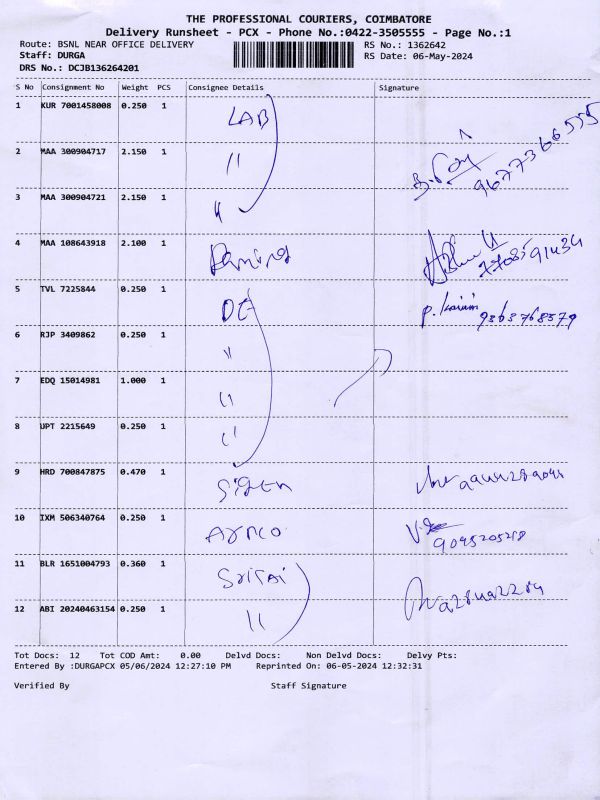 THE PROFESSIONAL COURIERS, COIMBATORE
Delivery Runsheet - PCX - Phone No.:0422-3505555 - Page No.:1
Route: BSNL NEAR OFFICE DELIVERY RS No.: 1362642
Staff: DURGA RS Date: 06-May-2024
DRS No.: DCJB136264201
S No Consignment No Weight PCS Consignee Details Signature
1 KUR 7001458008 0.250 1 LAB
2 MAA 300904717 2.150 1 " 9677366555
3 MAA 300904721 2.150 1 "
4 MAA 108643918 2.100 1 7708591434
5 TVL 7225844 0.250 1 DE 9363768579
6 RJP 3409862 0.250 1 "
7 EDQ 15014981 1.000 1 "
8 UPT 2215649 0.250 1 "
9 HRD 700847875 0.470 1
10 IXM 506340764 0.250 1
11 BLR 1651004793 0.360 1
12 ABI 20240463154 0.250 1 "
Tot Docs: 12 Tot COD Amt: 0.00 Delvd Docs: Non Delvd Docs: Delvy Pts:
Entered By :DURGAPCX 05/06/2024 12:27:10 PM Reprinted On: 06-05-2024 12:32:31
Verified By Staff Signature